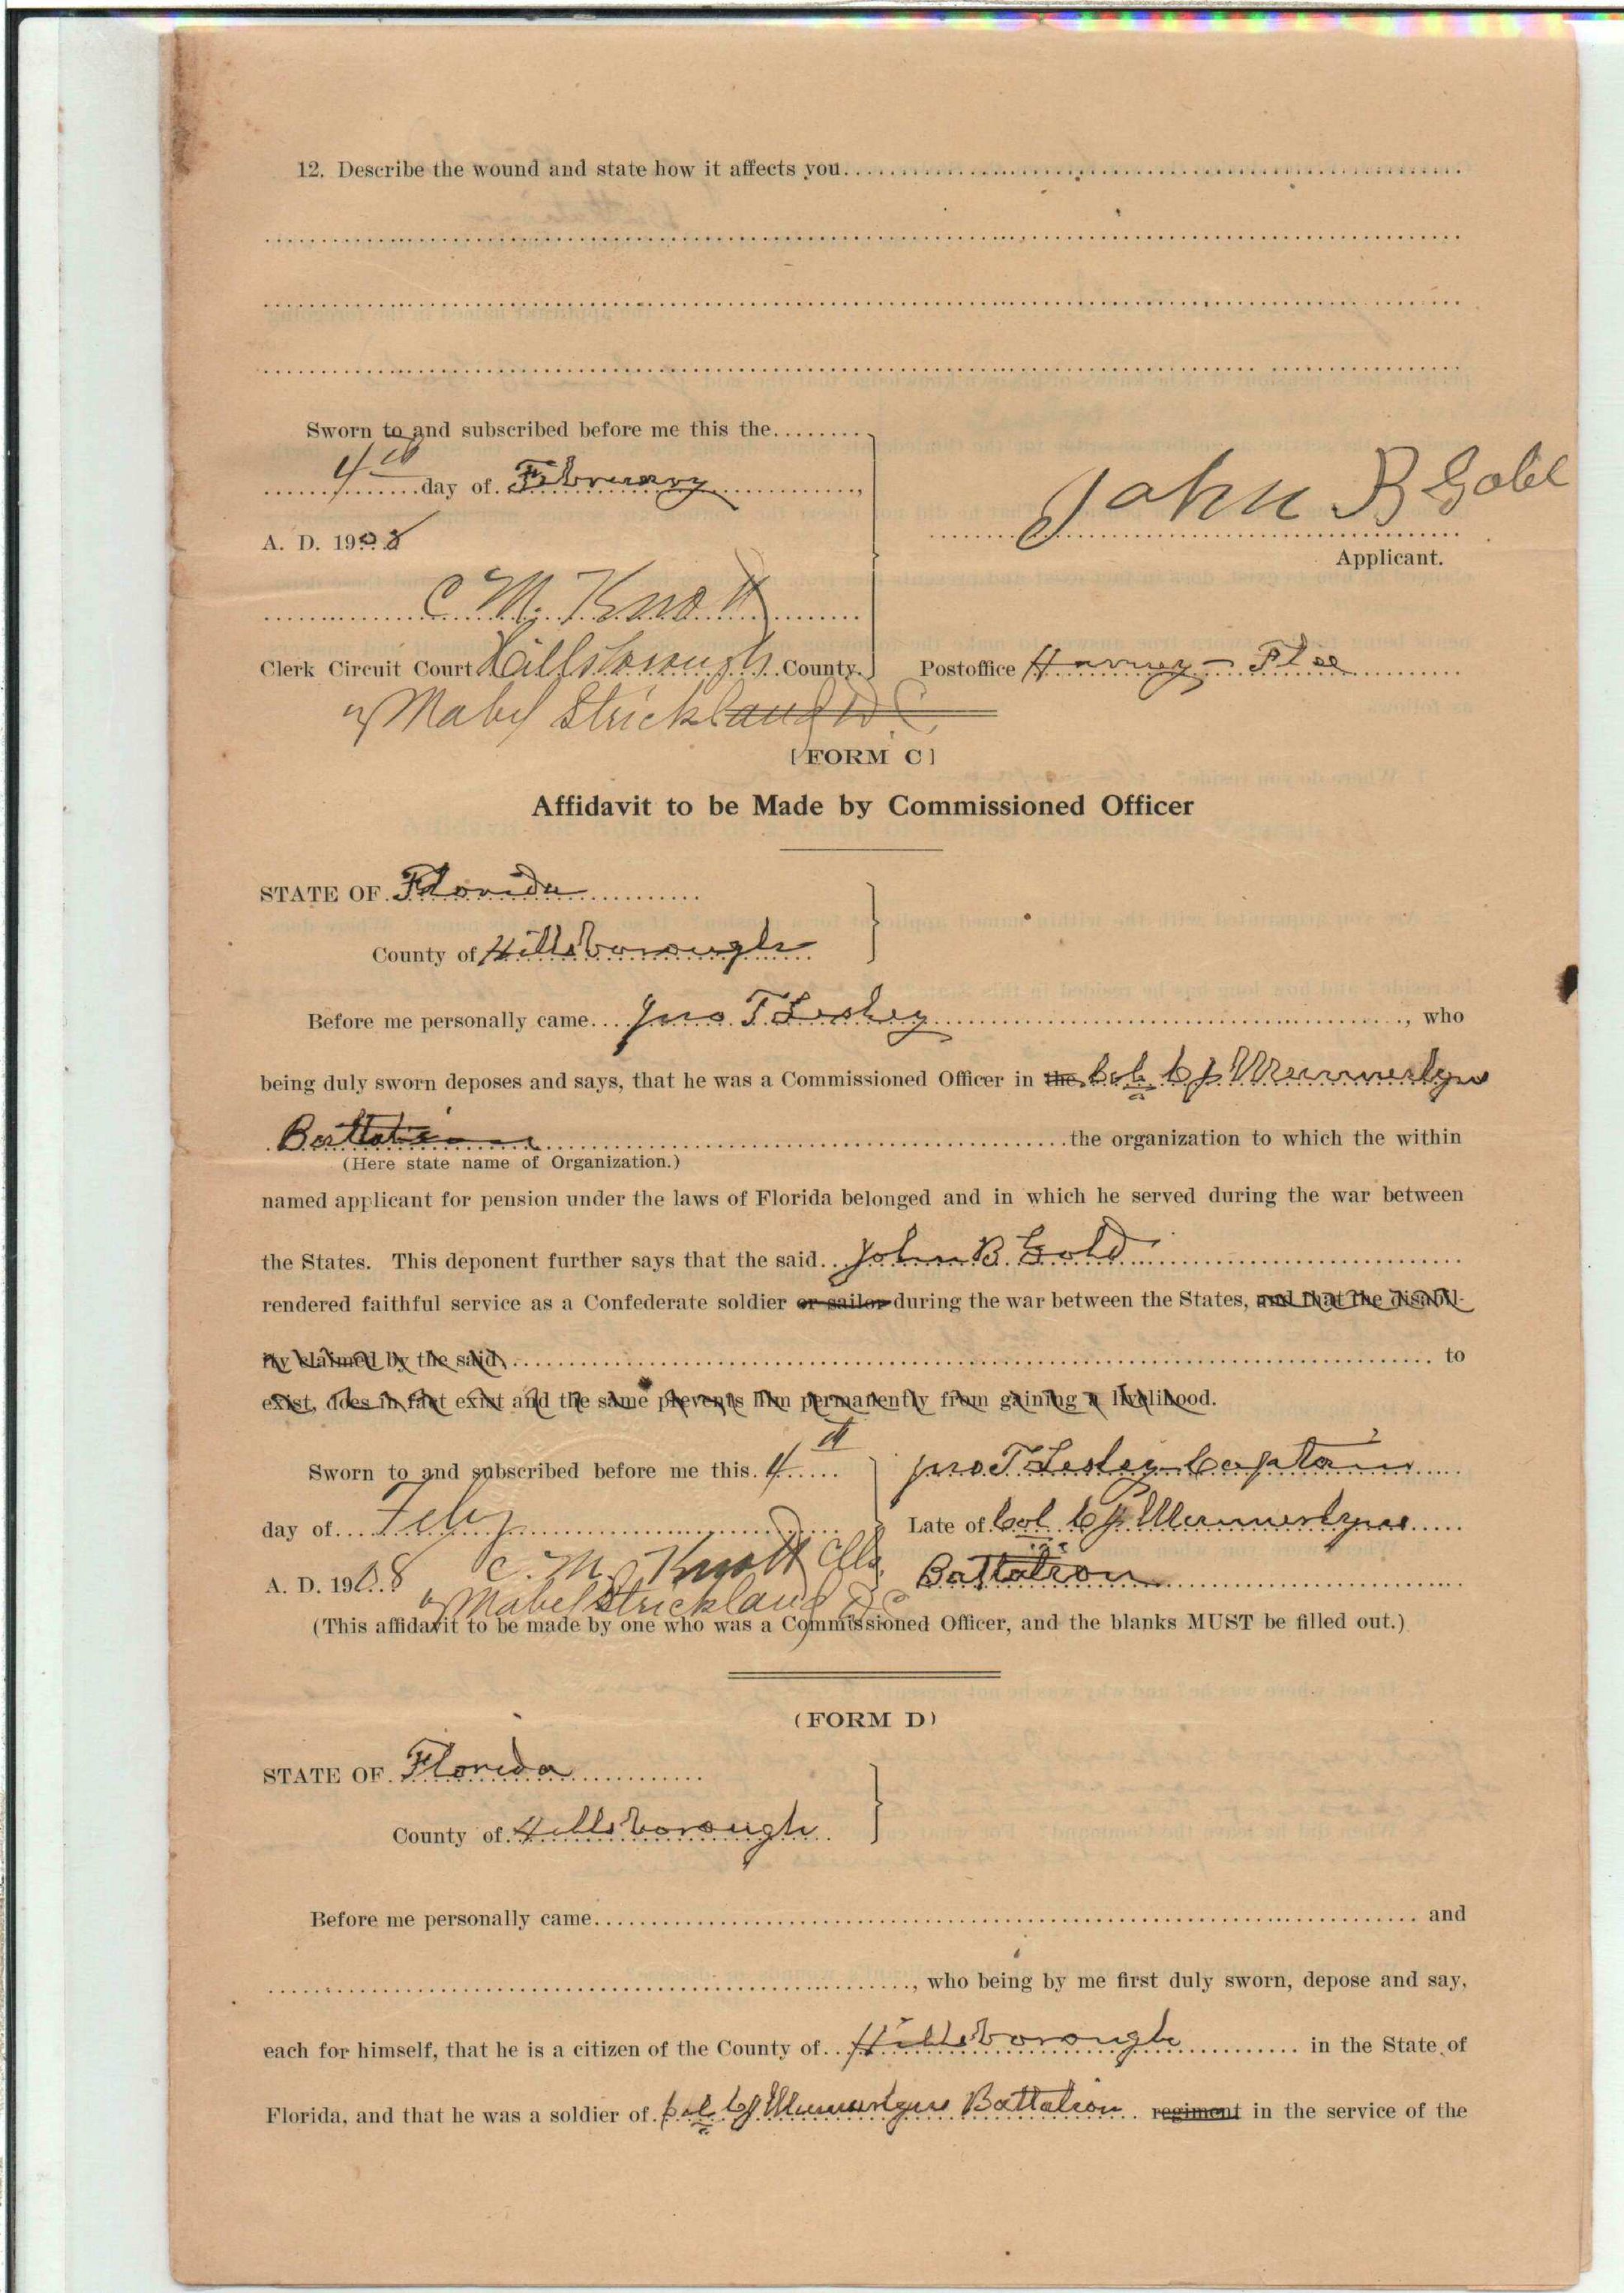 12. Describe the wound and state how it affects you
Sworn to and subscribed before me this the
4th day of February,
A. D. 1908
John B Gobl
Applicant.
C M. Knott
Clerk Circuit Court Hillsborough County.
Postoffice Harney - Fla
by Mabel Strickland DC
[FORM C]
Affidavit to be Made by Commissioned Officer
STATE OF Florida
County of Hillsborough
Before me personally came Jno T Lesley, who
being duly sworn deposes and says, that he was a Commissioned Officer in the Col. C J Munnerlyns
Battalion the organization to which the within
(Here state name of Organization.)
named applicant for pension under the laws of Florida belonged and in which he served during the war between
the States. This deponent further says that the said John B. Gold
rendered faithful service as a Confederate soldier or sailor during the war between the States, and that the disabil-
ity claimed by the said to
exist, does in fact exist and the same prevents him permanently from gaining a livelihood.
Sworn to and subscribed before me this 4th
Jno. T. Lesley Captain
day of Feby
Late of Col C J Munnerlyns
A. D. 1908 C. M. Knott Clk
Battalion
by Mabel Strickland DC
(This affidavit to be made by one who was a Commissioned Officer, and the blanks MUST be filled out.)
(FORM D)
STATE OF Florida
County of Hillsborough
Before me personally came and
, who being by me first duly sworn, depose and say,
each for himself, that he is a citizen of the County of Hillsborough in the State of
Florida, and that he was a soldier of Col. C J Munnerlyns Battalion regiment in the service of the